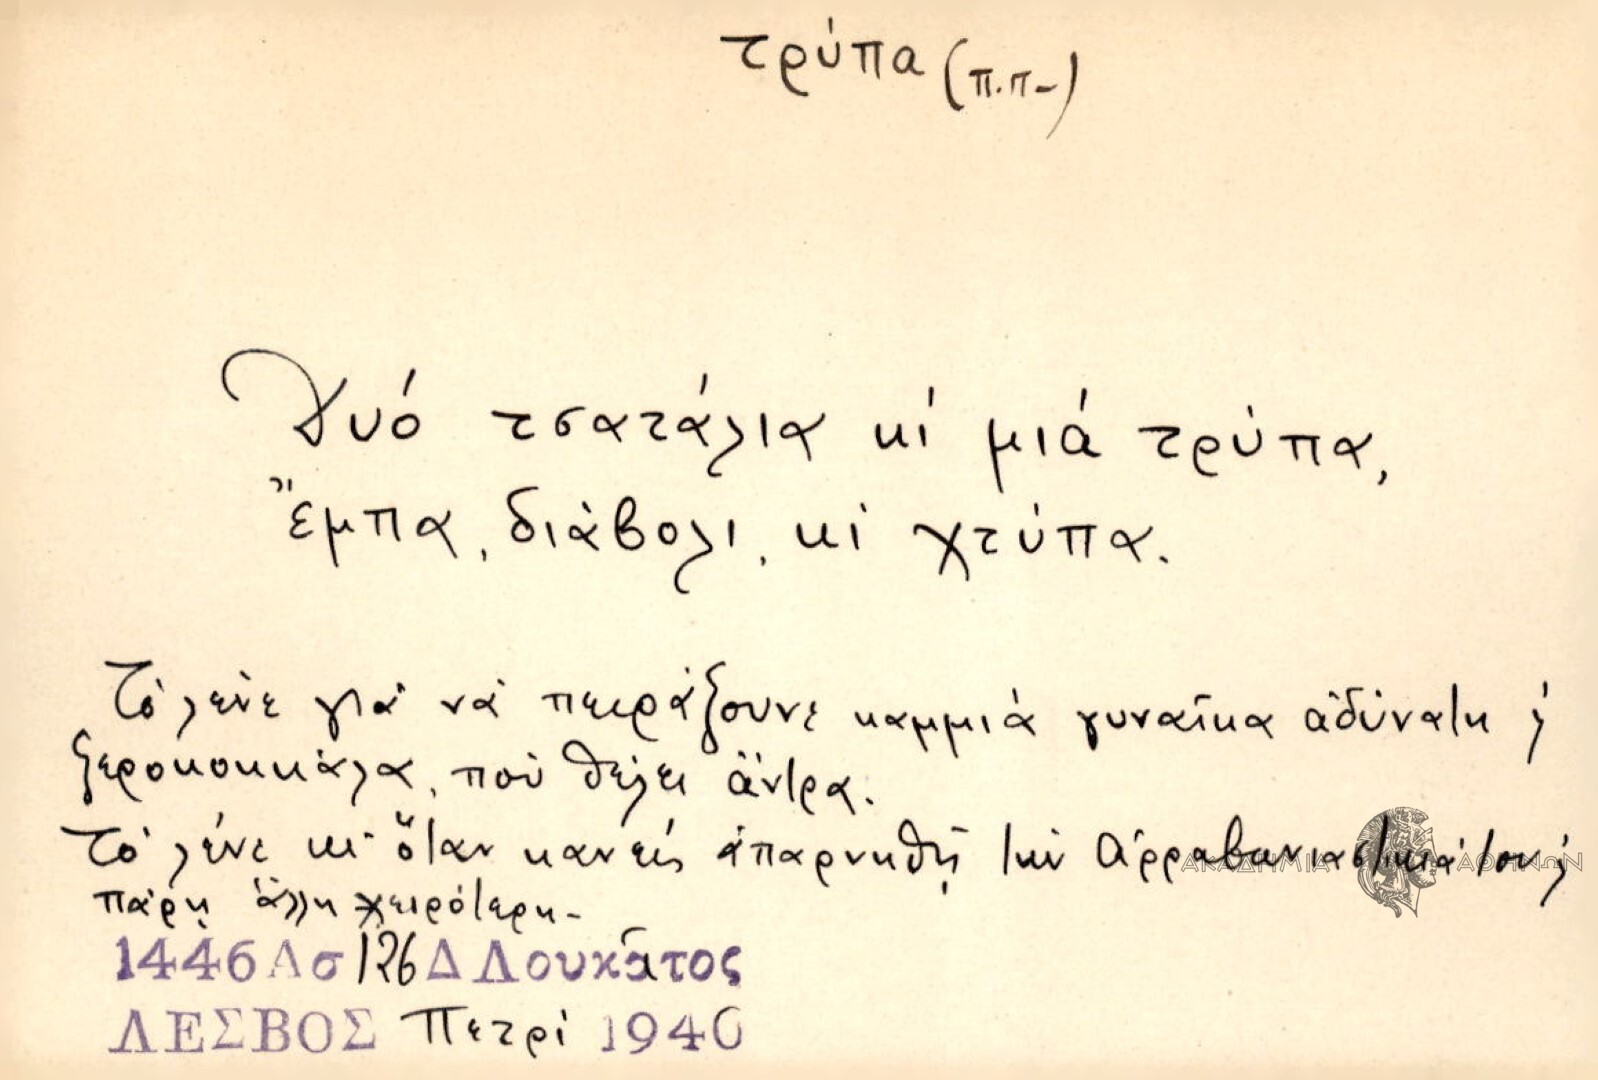 τρύπα (π.π-)
Δυό τσατάλια κί μιά τρύπα,
Ἔμπα, διάβολι, κί χτύπα.
Τό λένε γιά νά πειράξουνε καμμιά γυναῖκα ἀδύνατη ἤ
ξεροκοκκάλα, πού θέλει ἄντρα.
Τό λένε κι ὅταν κανείς ἀπαρνηθῇ τήν ἀρραβωνιαστικιά του ἤ
πάρῃ ἄλλη χειρότερη-
1446 Λσ 126 Δ Λουκᾶτος
ΛΕΣΒΟΣ Πετρί 1940
ΑΚΑΔΗΜΙΑ ΑΘΗΝΩΝ